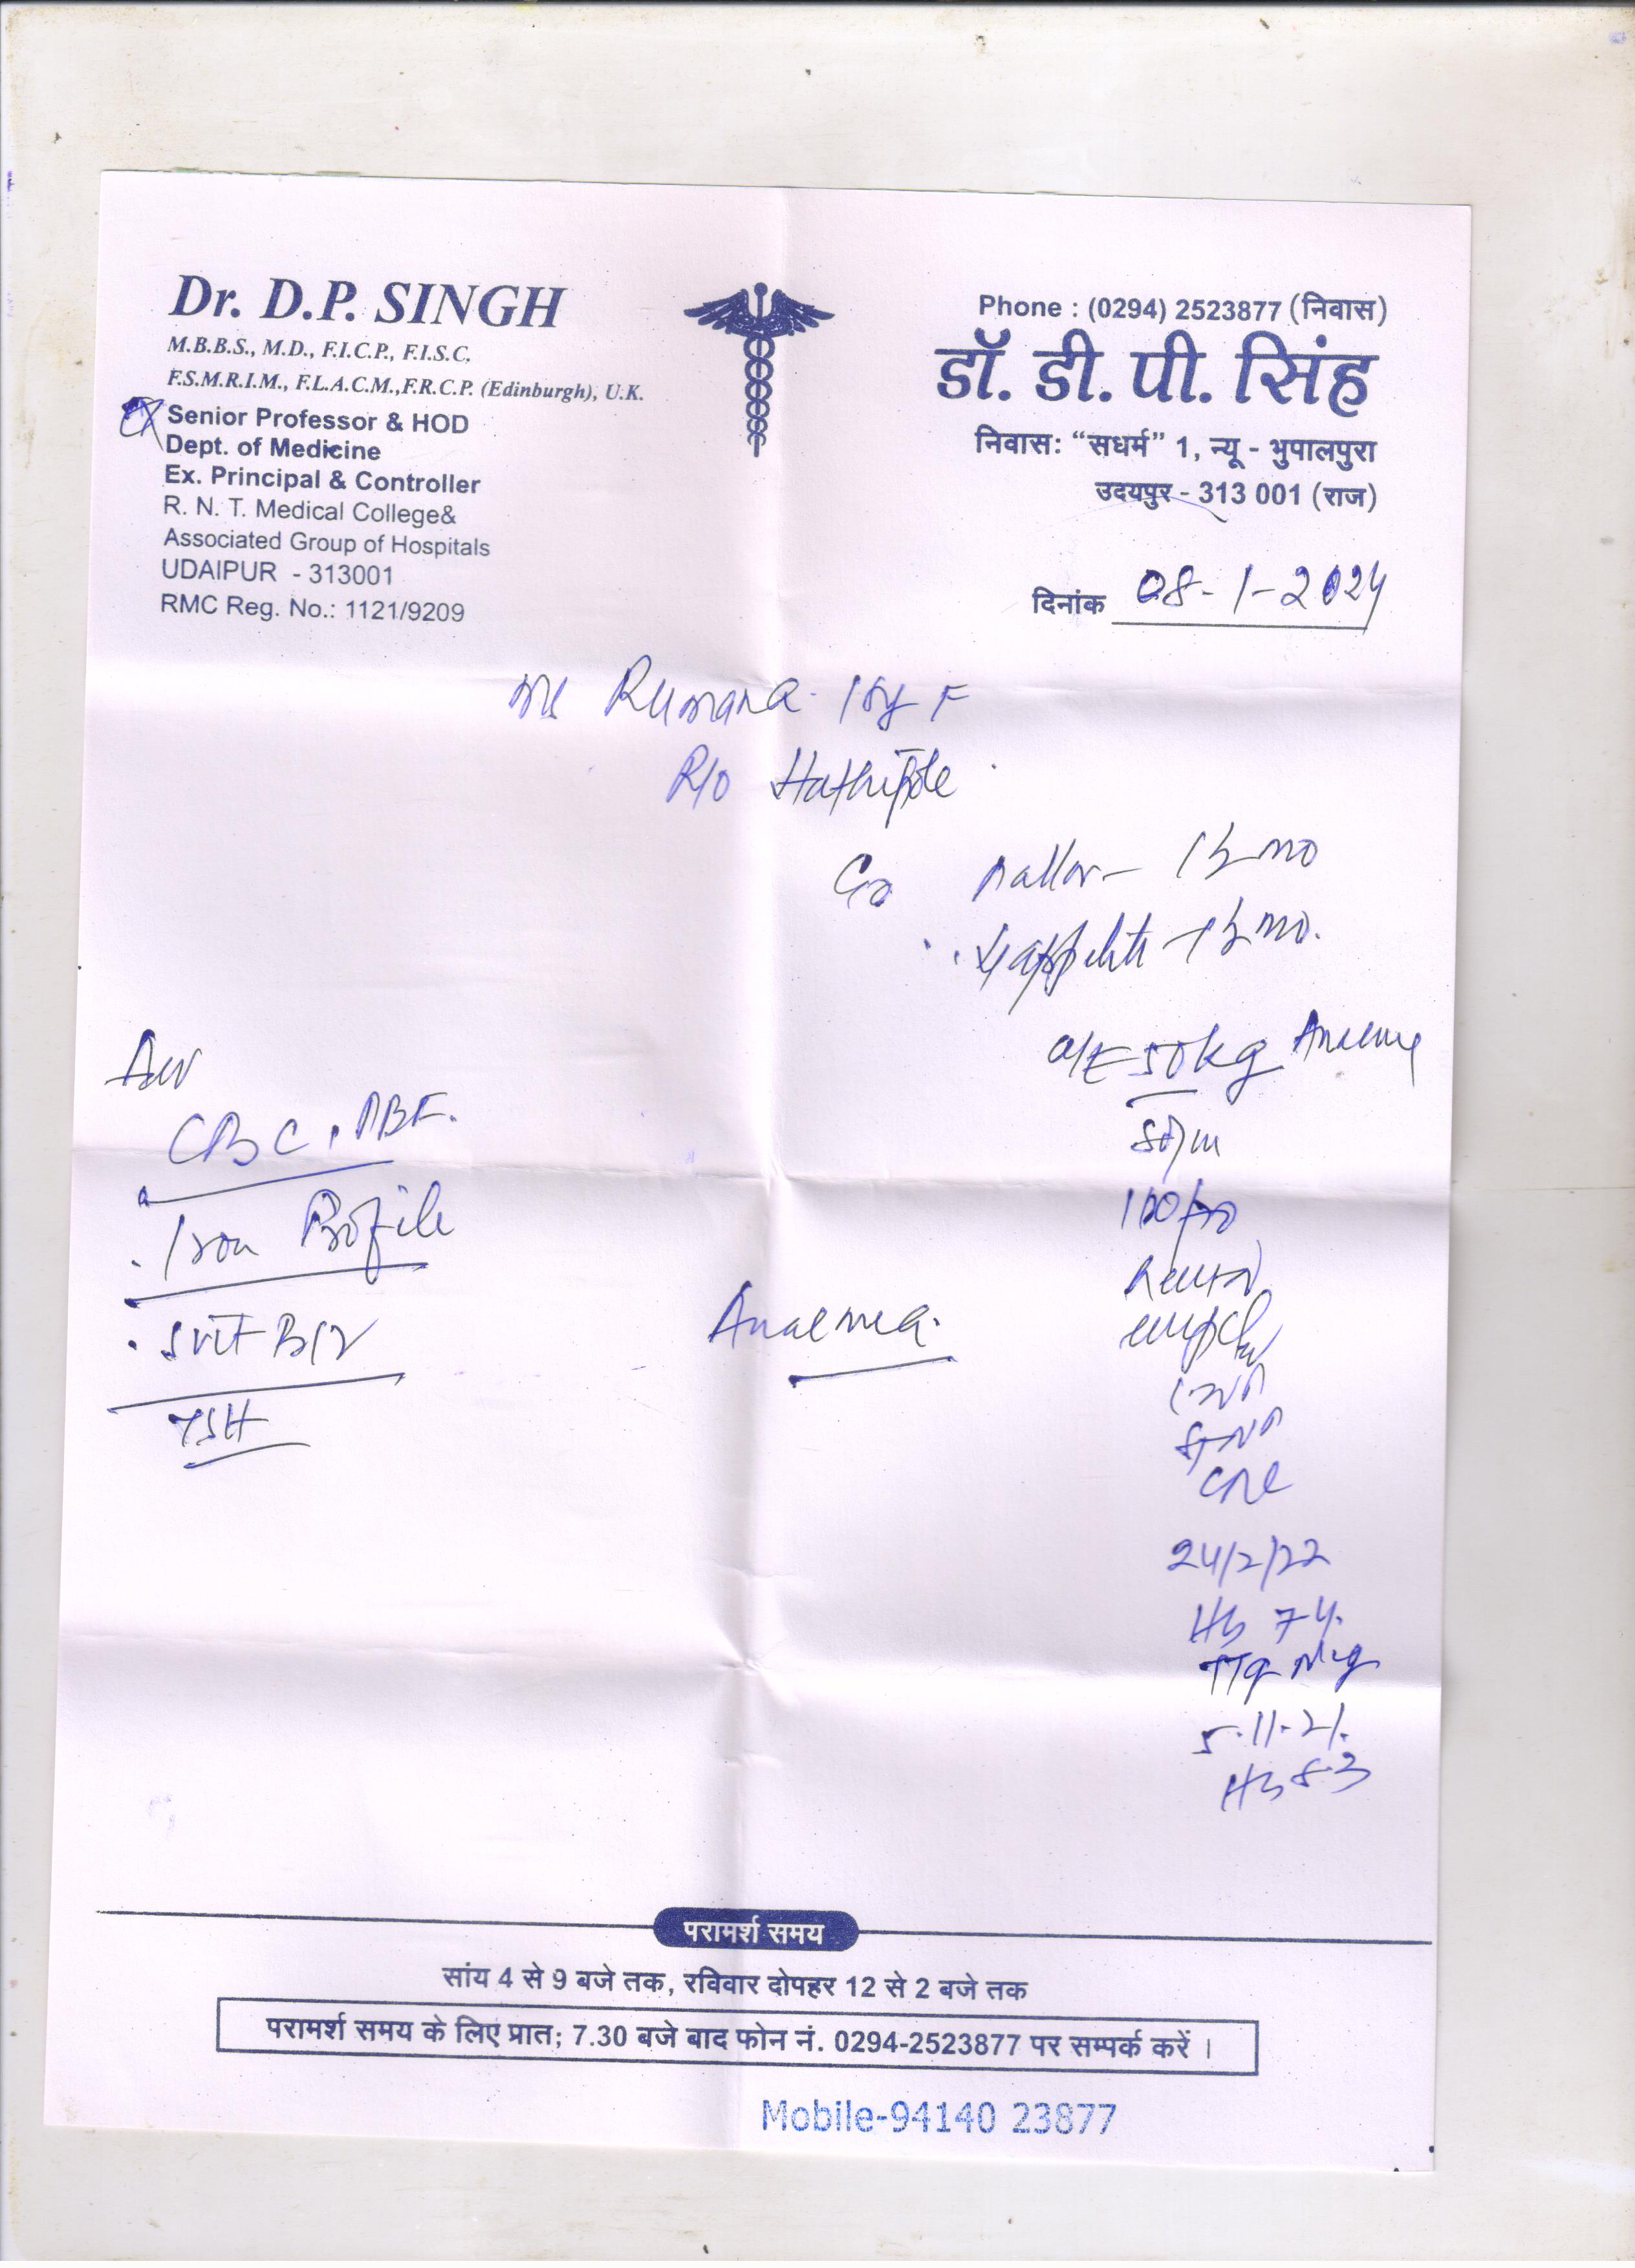 Dr. D.P. SINGH
M.B.B.S., M.D., F.I.C.P., F.I.S.C.
F.S.M.R.I.M., F.L.A.C.M.,F.R.C.P. (Edinburgh), U.K.
Ex Senior Professor & HOD
Dept. of Medicine
Ex. Principal & Controller
R. N. T. Medical College&
Associated Group of Hospitals
UDAIPUR - 313001
RMC Reg. No.: 1121/9209
Phone : (0294) 2523877 (निवास)
डॉ. डी. पी. सिंह
निवास: “सधर्म” 1, न्यू - भुपालपुरा
उदयपुर - 313 001 (राज)
दिनांक 08-1-2024
Rumana F
R/o Hathipole
Pallor
appetite
O/E 50kg
Adv
CBC, PBF.
Iron Profile
B12
TSH
Anaemia.
24/2/22
Hb
TTg
5.11.21.
Hb 8.3
परामर्श समय
सांय 4 से 9 बजे तक, रविवार दोपहर 12 से 2 बजे तक
परामर्श समय के लिए प्रात; 7.30 बजे बाद फोन नं. 0294-2523877 पर सम्पर्क करें ।
Mobile-94140 23877